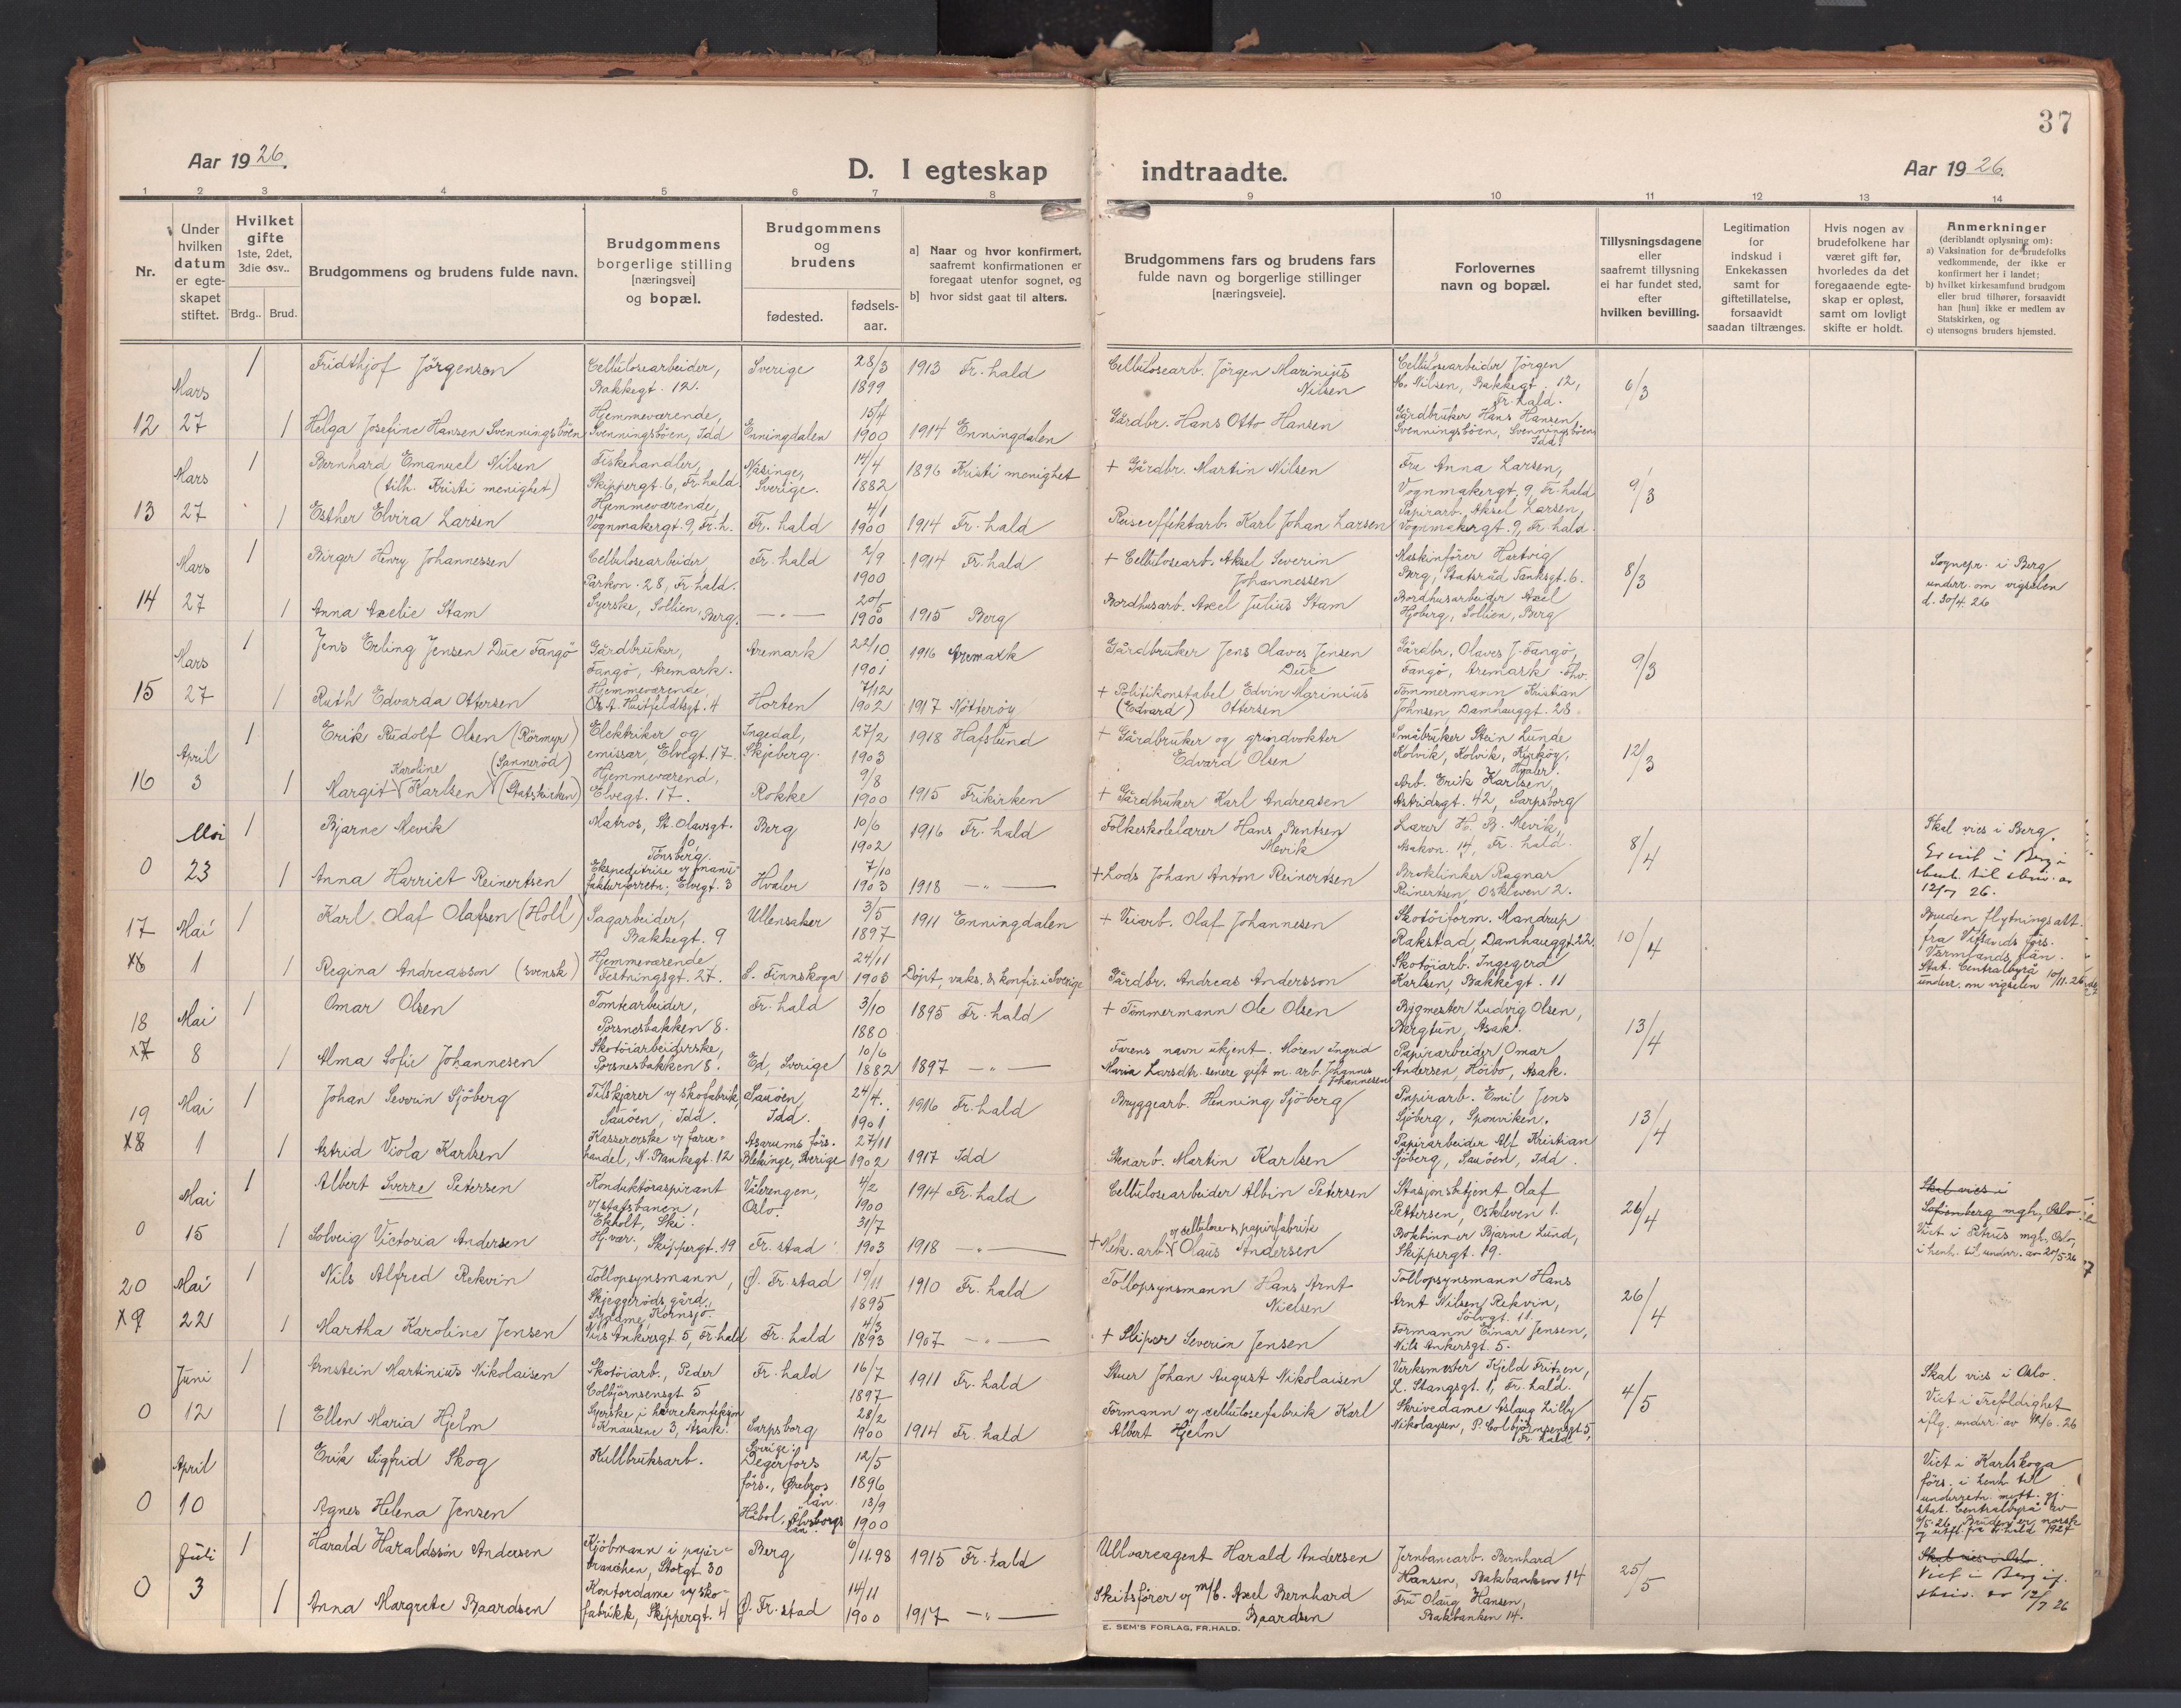 37
Aar 1926.
D. I egteskap indtraadte.
Aar 1926.
1 2 3 4 5 6 7 8 9 10 11 12 13 14
Nr.
Under hvilken datum er egte-skapet stiftet.
Hvilket gifte 1ste, 2det, 3die osv..
Brdg.. Brud.
Brudgommens og brudens fulde navn.
Brudgommens borgerlige stilling [næringsvei] og bopæl.
Brudgommens og brudens
fødested.
fødsels-aar.
a] Naar og hvor konfirmert, saafremt konfirmationen er foregaat utenfor sognet, og
b] hvor sidst gaat til alters.
Brudgommens fars og brudens fars fulde navn og borgerlige stillinger [næringsveie].
Forlovernes navn og bopæl.
Tillysningsdagene eller saafremt tillysning ei har fundet sted, efter hvilken bevilling.
Legitimation for indskud i Enkekassen samt for giftetillatelse, forsaavidt saadan tiltrænges.
Hvis nogen av brudefolkene har været gift før, hvorledes da det foregaaende egte-skap er opløst, samt om lovligt skifte er holdt.
Anmerkninger (deriblandt oplysning om):
a) Vaksination for de brudefolks vedkommende, der ikke er konfirmert her i landet;
b) hvilket kirkesamfund brudgom eller brud tilhører, forsaavidt han [hun] ikke er medlem av Statskirken, og
c) utensogns bruders hjemsted.
12 Mars 27
1 Fridthjof Jörgensen Cellulosearbeider, Bakkegt. 12. Sverige 28/3 1899 1913 Fr.hald Cellulosearb. Jörgen Marinius Nilsen Cellulosearbeider Jörgen M. Nilsen, Bakkegt. 12, Fr.hald. 6/3
1 Helga Josefine Hansen Svenningsböen Hjemmeværende, Svenningsböen, Idd Enningdalen 15/4 1900 1914 Enningdalen Gårdbr. Hans Otto Hansen Gårdbruker Hans Hansen, Svenningsböen, Svenningsböen Idd.
13 Mars 27
1 Bernhard Emanuel Nilsen (tilh. Kristi menighet) Fiskehandler, Skippergt. 6, Fr.hald. Näsinge, Sverige. 14/4 1882 1896 Kristi menighet + Gårdbr. Martin Nilsen Fru Anna Larsen, Vognmakergt. 9, Fr.hald 9/3
1 Esther Elvira Larsen Hjemmeværende, Vognmakergt. 9, Fr.h. Fr.hald 4/1 1900 1914 Fr.hald Reiseeffektarb. Karl Johan Larsen Papirarb. Aksel Larsen, Vognmakergt. 9, Fr.hald.
14 Mars 27
1 Birger Henry Johannessen Cellulosearbeider, Parkvn. 28, Fr.hald. Fr.hald 2/9 1900 1914 Fr.hald + Cellulosearb. Aksel Severin Johannessen Maskinförer Hartvig Berg, Statsråd Tanksgt. 6. 8/3 Sognepr. i Berg underr. om vigselen d. 30/4. 26
1 Anna Axelie Stam Syerske, Sollien, Berg. — " — 20/5 1900 1915 Berg Bordhusarb. Axel Julius Stam Bordhusarbeider Axel Hjoberg, Sollien, Berg
15 Mars 27
1 Jens Erling Jensen Due Fangö Gårdbruker, Fangö, Aremark. Aremark 22/10 1901 1916 Aremark Gårdbruker Jens Olaves Jensen Due Gårdbr. Olaves J. Fangö, Fangö, Aremark. 9/3
1 Ruth Edvarda Ottersen Hjemmeværende, Huitfeldtsgt. 4 Horten 7/12 1902 1917 Nötteröy + Politikonstabel Edvin Marinius (Edvard) Ottersen Tömmermann Kristian Johnsen, Damhauggt. 28
16 April 3
1 Erik Rudolf Olsen (Rörmyr) Elektriker og emissær, Elvegt. 17. Ingedal, Skjeberg. 27/2 1903 1918 Hafslund + Gårdbruker og grindvokter Edvard Olsen Småbruker Stein Lunde Kolvik, Kolvik, Kirköy, Hvaler. 12/3
1 Margit Karoline Karlsen (Sanneröd) (Statskirken) Hjemmeværend, Elvegt. 17. Rokke 9/8 1900 1915 Frikirken + Gårdbruker Karl Andreasen Arb. Erik Karlsen, Astridsgt. 42, Sarpsborg
0 Mai 23
1 Bjarne Mevik Matros, St. Olavsgt. 10, Tönsberg. Berg 10/6 1902 1916 Fr.hald Folkeskolelærer Hans Bentsen Mevik Lærer H. B. Mevik, Asakvn. 14, Fr.hald. 8/4 Skal vies i Berg. Er viet i Berg i henh. til skriv. av 12/7 26.
1 Anna Harriet Reinertsen Ekspeditrise v/ manu-fakturforretn; Elvegt. 3 Hvaler 7/10 1903 1918 — " — + Lods Johan Anton Reinertsen Broklinker Ragnar Reinertsen, Oskleven 2.
17 Mai 1
1 Karl Olaf Olafsen (Holl) Sagarbeider, Bakkegt. 9 Ullensaker 3/5 1897 1911 Enningdalen + Veiarb. Olaf Johannesen Skotöiform. Mandrup Rakstad, Damhauggt. 22. 10/4 Bruden flytningsatt. fra Vitsands förs. Värmlands län. Stat. Centralbyrå underr. om vigselen 10/11.26
1 Regina Andreasson (svensk) Hjemmeværende, Festningsgt. 27. S. Finnskoga 24/11 1903 Döpt, vaks. & konfir. i Sverige Gårdbr. Andreas Andersson Skotöiarb. Ingegerd Karlsen, Bakkegt. 11
18 Mai 8
1 Omar Olsen Tomtearbeider, Porsnesbakken 8. Fr.hald 3/10 1880 1895 Fr.hald + Tömmermann Ole Olsen Bygmester Ludvig Olsen, Bergtun, Asak. 13/4
1 Alma Sofie Johannesen Skotöiarbeiderske, Porsnesbakken 8. Ed, Sverige 10/6 1882 1897 — " — Farens navn ukjent. Moren Ingrid Maria Larsdtr. senere gift m. arb. Johannes Johannesen Papirarbeider Omar Andersen, Hörbo, Asak.
19 Mai 1
1 Johan Severin Sjöberg Tilskjærer v/ skofabrik, Sauöen, Idd. Sauöen, Idd. 24/4. 1901 1916 Fr.hald Bryggearb. Henning Sjöberg Papirarb. Emil Jens Sjöberg, Sponviken. 13/4
1 Astrid Viola Karlsen Kassererske v/ farve-handel, N. Bankegt. 12 Asarums förs. Blekinge, Sverige 27/11 1902 1917 Idd Stenarb. Martin Karlsen Papirarbeider Alf Kristian Sjöberg, Sauöen, Idd.
0 Mai 15
1 Albert Sverre Petersen Konduktöraspirant v/ statsbanen, Ekholt, Ski. Vålerengen, Oslo. 4/2 1900 1914 Fr.hald Cellulosearbeider Albin Petersen Stasjonsbetjent Olaf Pettersen, Oskleven 1. 26/4 Skal vies i Sofienberg mgh., Oslo. Viet i Petrus mgh, Oslo, i henh. til underr. av 20/5-26
1 Solveig Victoria Andersen Hj.vær., Skippergt. 19 Fr.stad 31/7 1903 1918 — " — + Mek. arb. v/ cellulose- & papirfabrikk Olaus Andersen Bokbinner Bjarne Lund, Skippergt. 19.
20 Mai 22
1 Nils Alfred Rekvin Tollopsynsmann, Skjeggeröds gård, Kornsjö. Ø. Fr.stad 19/11 1895 1910 Fr.hald Tollopsynsmann Hans Arnt Nielsen Tollopsynsmann Hans Arnt Nilsen Rekvin, Sölvgt. 11. 26/4
1 Martha Karoline Jensen Sydame, Nils Ankersgt 5, Fr.hald Fr.hald 4/3 1893 1907 — " — + Skiper Severin Jensen Formann Einar Jensen, Nils Ankersgt. 5.
0 Juni 12
1 Arnstein Martinius Nikolaisen Skotöiarb., Peder Colbjörnsensgt 5 Fr.hald 16/7 1897 1911 Fr.hald Stuer Johan August Nikolaisen Verksmester Kjeld Fritzen, L. Stangsgt. 1, Fr.hald. 4/5 Skal vies i Oslo. Viet i Trefoldighet iflg. underr. av 12/6. 26
1 Ellen Maria Hjelm Syerske i herrekonfeksjon Knausene 3, Asak. Sarpsborg 28/2 1900 1914 Fr.hald Formann v/ cellulosefabrik Karl Albert Hjelm Skrivedame Aslaug Lilly Nikolaysen, P. Colbjörnsensgt 5, Fr.hald
0 April 10
Erik Sigfrid Skog Kullbruksarb. Sverige: Degerfors förs., Örebros län. 12/5 1896 Viet i Karlskoga förs. i henh. til underretn. mott. gj. stat. Centralbyrå av 6/5.26. Bruden er norsk
Agnes Helena Jensen Håbol, Älvsborgs län. 13/9 1900
0 Juli 3
1 Harald Haraldssön Andersen Kjöbmann i papir-branchen, Storgt 30 Berg 6/11.98 1915 Fr.hald Ullvareagent Harald Andersen Jernbanearb. Bernhard Hansen, Bakbanken 14 25/5 Skal vies i Oslo. Viet i Berg if. skriv. av 12/7 26
1 Anna Margrete Baardsen Kontordame v/ sko-fabrikk, Skippergt. 4 Ø. Fr.stad 14/11 1900 1917 — " — Skibsförer v/ m/b. Axel Bernhard Baardsen Fru Olaug Hansen, Bakbanken 14.
E. SEM'S FORLAG, FR.HALD.